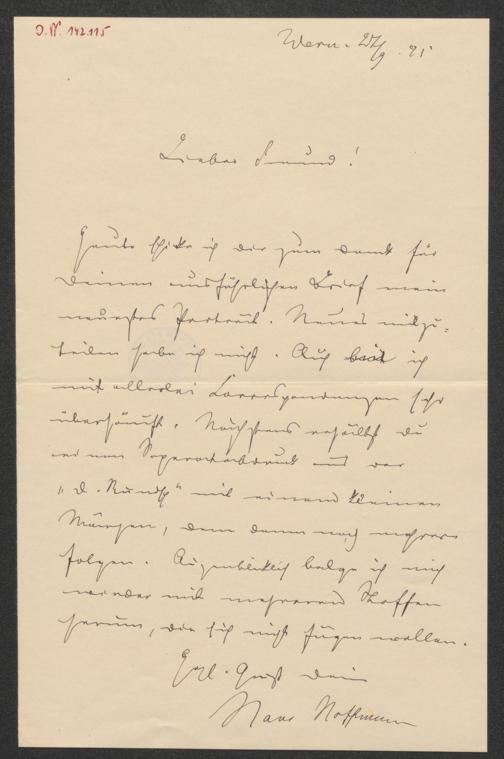 J.N. 142.115
Wern. 25/9. 91
Lieber Freund!
Heute schicke ich dir zum Dank für
Deinen ausführlichen Brief mein
neuestes Porträt. Neues mitzu-
teilen habe ich nicht. Auch bin ich
mit allerlei Correspondenzen sehr
überhäuft. Nächstens erhältst du
einen Separatabdruck aus der
"D. Rundsch" mit einem kleinen
Märchen, dem dann noch mehrere
folgen. Augenblicklich balge ich mich
wieder mit mehreren Stoffen
herum, die sich nicht fügen wollen.
Herzl. Gruß Dein
Hans Hoffmann